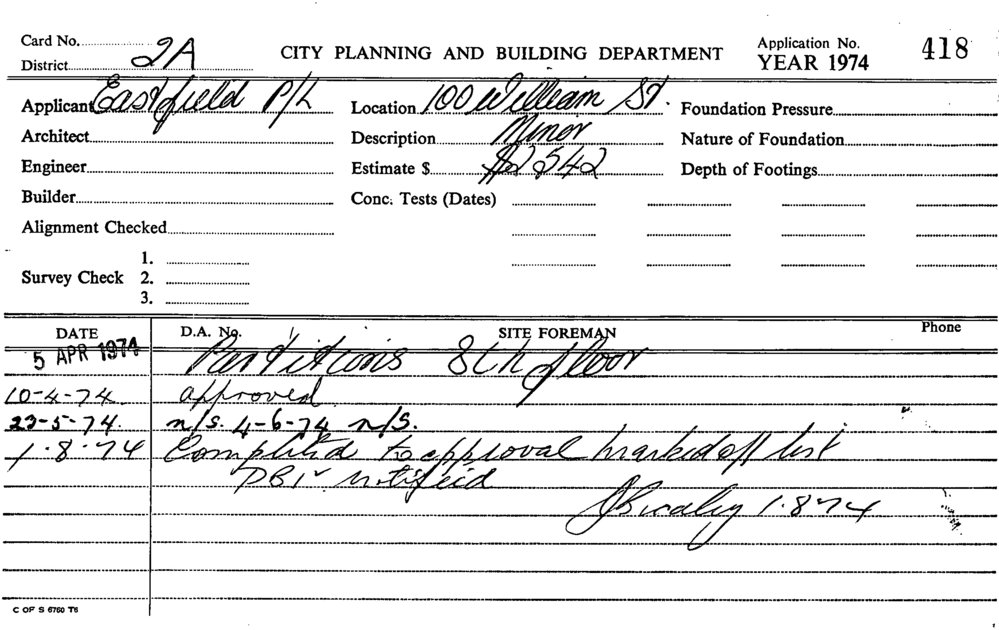 Card No. 2A
District
CITY PLANNING AND BUILDING DEPARTMENT
Application No. 418
YEAR 1974
Applicant Eastfield P/L
Location 100 William St.
Foundation Pressure
Architect
Description Minor
Nature of Foundation
Engineer
Estimate $ $2542
Depth of Footings
Builder
Conc. Tests (Dates)
Alignment Checked
Survey Check 1.
2.
3.
DATE D.A. No. SITE FOREMAN Phone
5 APR 1974 Partitions 8th floor
10-4-74 approved
23-5-74. n/s. 4-6-74 n/s.
1.8.74 Completed to approval marked off list
notified
1.8.74
C OF S 6760 T6